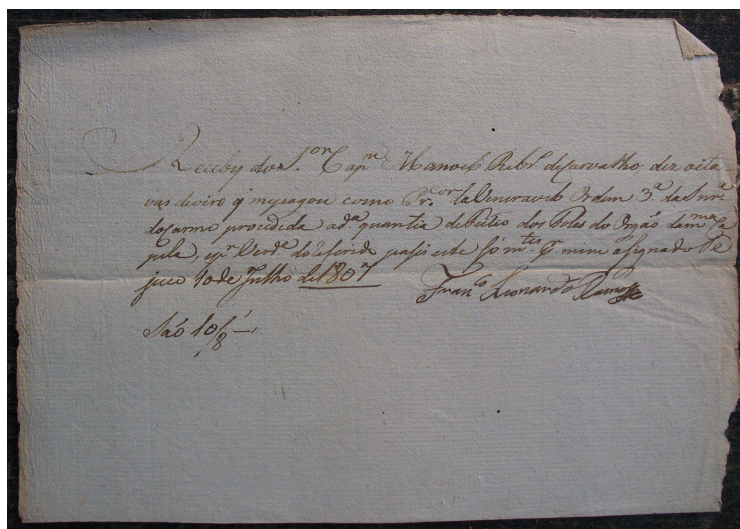 Receby do S.or Cap.m Manoel Rib.ro de Carvalho, dez oita
vas de oiro q me pagou como Pr.cor da Veneravel Ordem 3.a da Snr.a
do Carmo procedida a d.a quantia de feitio dos Foles do Orgão da m.ma Ca
pela, e p.r Verd.e do referido pasei este só m.te p mim asignado Te
juco 10 de Julho de 1807
Fran.co Leonardo
São 10/8.as